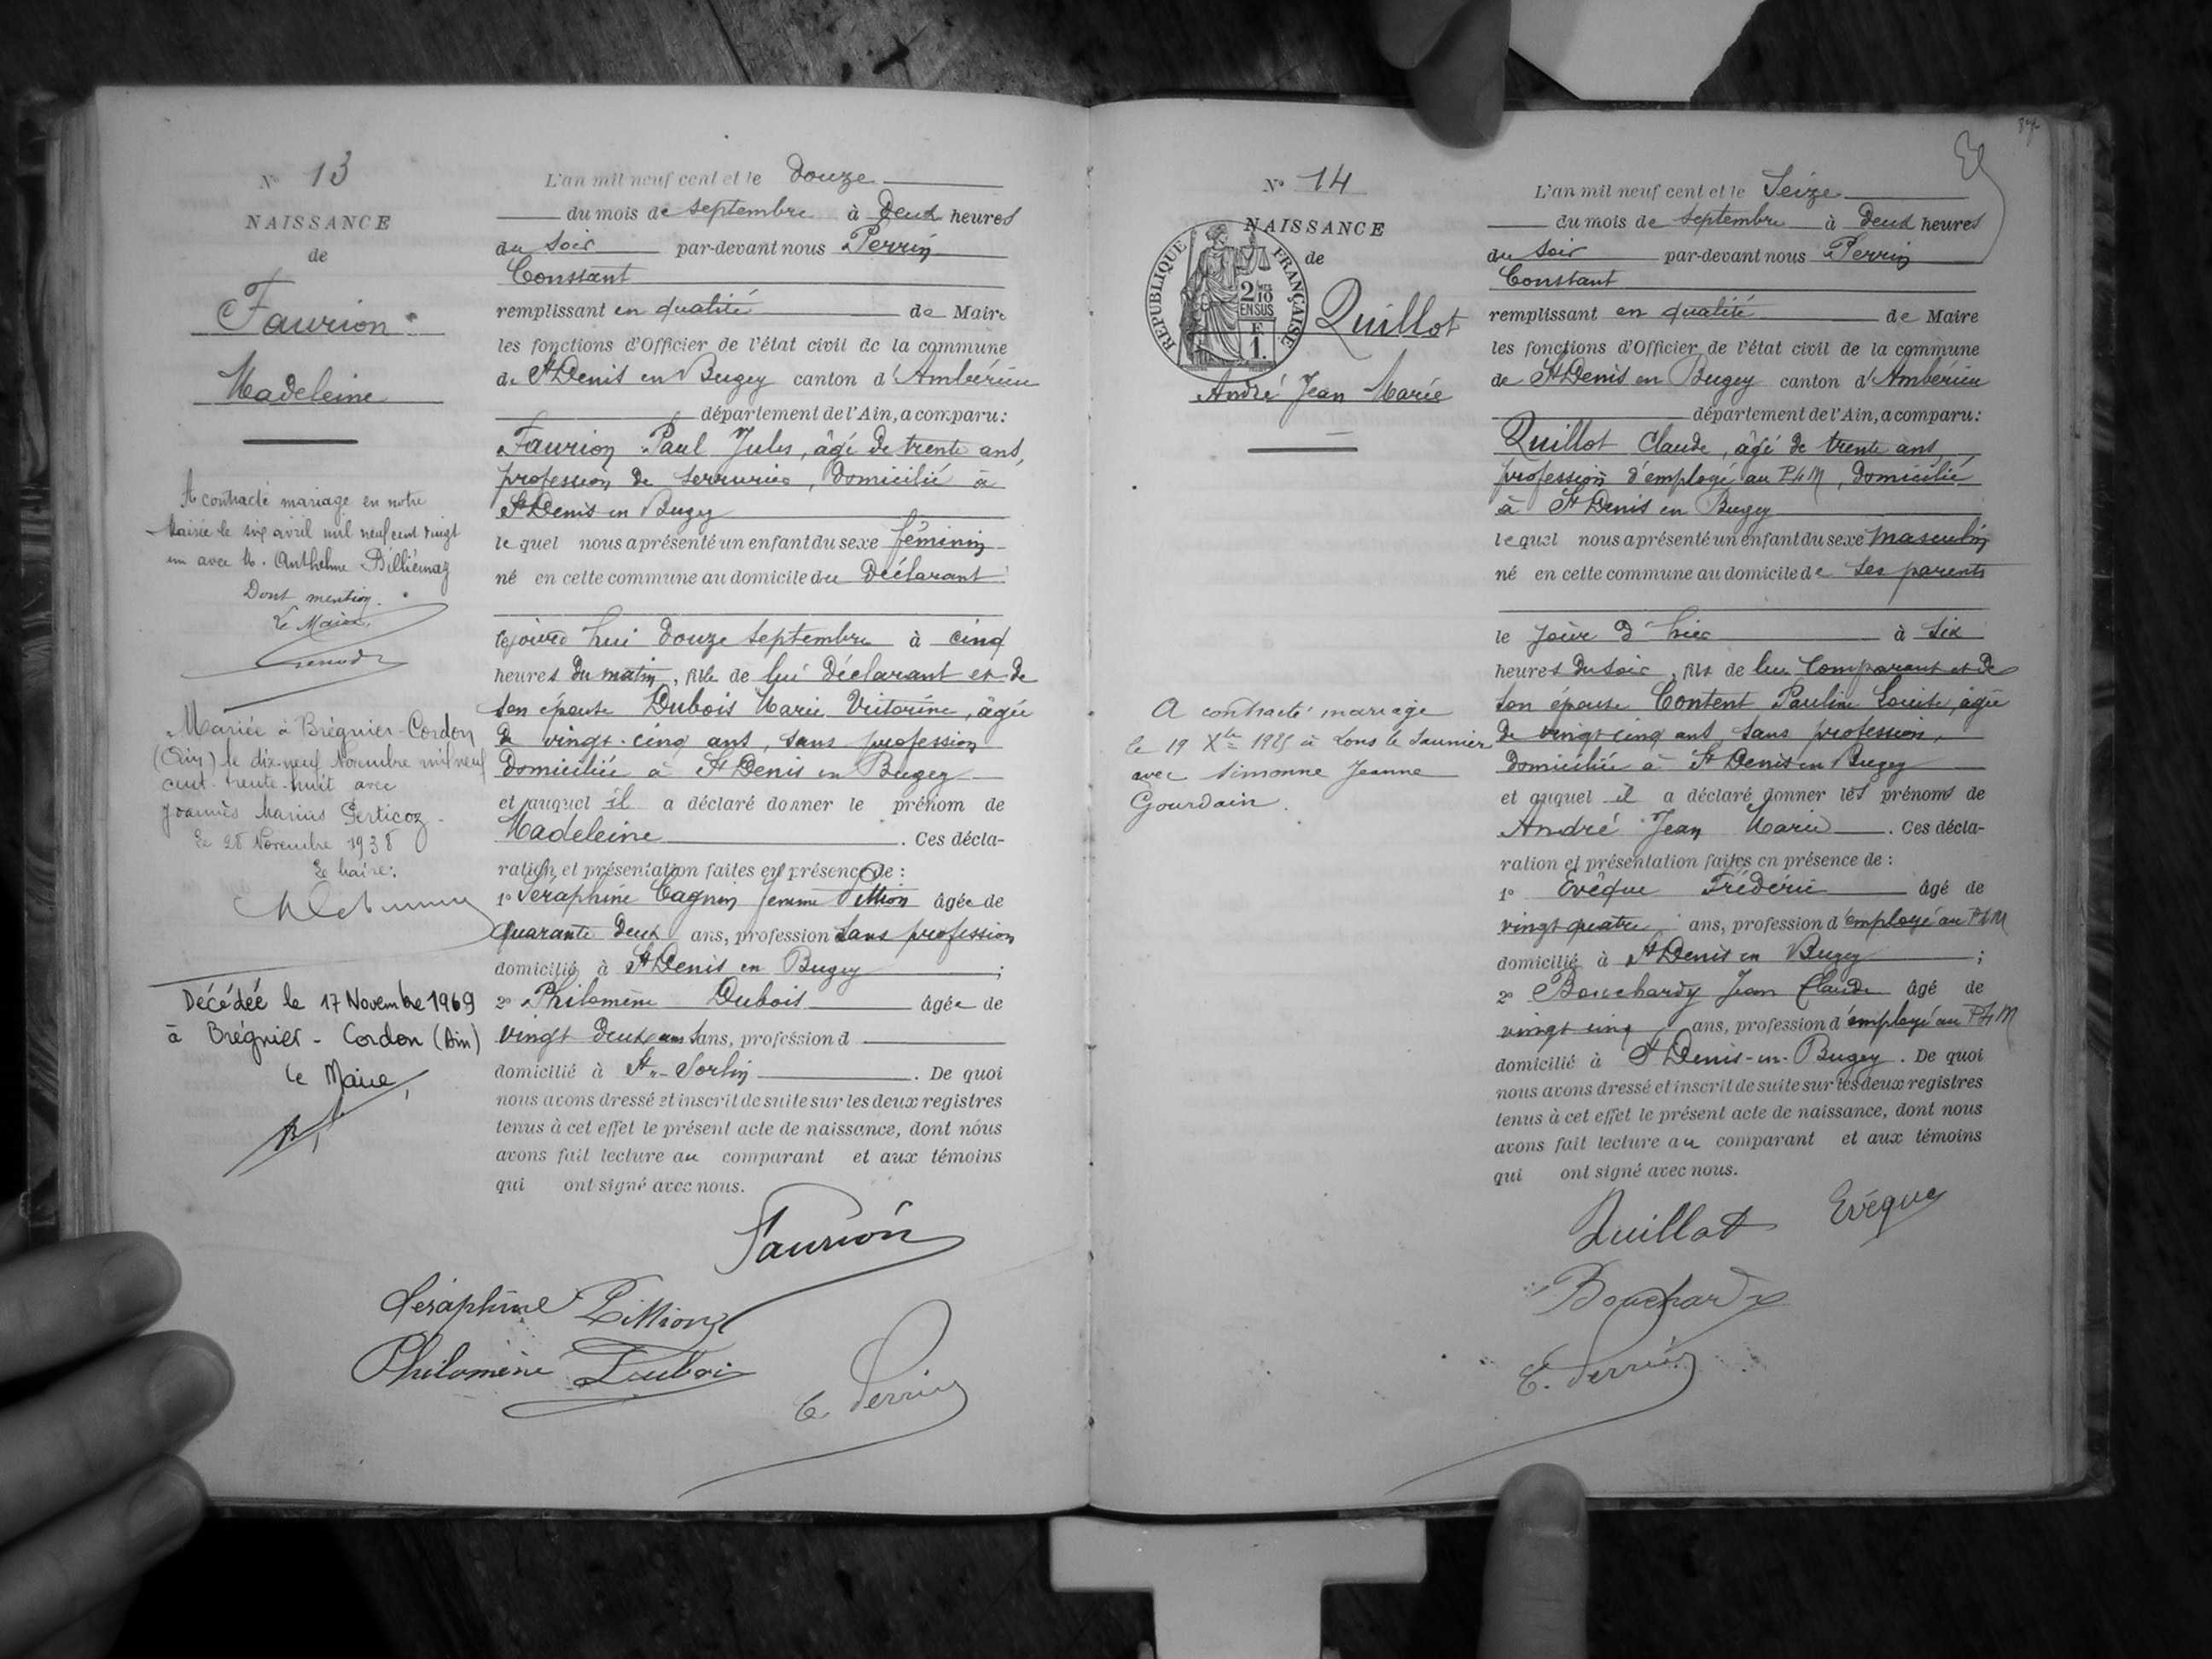 N° 13
NAISSANCE
de
Faurion
Madeleine
A contracté mariage en notre
Mairie le six avril mil neuf cent vingt
un avec M. Anthelme Billiémaz
Dont mention.
Le Maire,
Mariée à Brégnier-Cordon
(Ain) le dix-neuf Novembre mil neuf
cent trente-huit avec
Joannès Marius Perticoz
Le 28 Novembre 1938
Le Maire:
Décédée le 17 Novembre 1969
à Brégnier - Cordon (Ain)
Le Maire,
L'an mil neuf cent et le douze
du mois de septembre à deux heures
du soir par-devant nous Perrin
Constant
remplissant en qualité de Maire
les fonctions d'Officier de l'état civil de la commune
de St Denis en Bugey canton d'Ambérieu
département de l'Ain, a comparu:
Faurion Paul Jules, âgé de trente ans,
profession de serrurier, domicilié à
St Denis en Bugey
lequel nous a présenté un enfant du sexe féminin
né en cette commune au domicile du déclarant
cejourd hui douze septembre à cinq
heures du matin, fille de lui déclarant et de
son épouse Dubois Marie Victorine, âgée
de vingt-cinq ans, sans profession
domiciliée à St Denis en Bugey
et auquel il a déclaré donner le prénom de
Madeleine. Ces décla-
ration et présentation faites en présence de :
1° Séraphine Cagnin femme Pittion âgée de
quarante deux ans, profession sans profession
domicilié à St Denis en Bugey ;
2° Philomène Dubois âgée de
vingt deux ans ans, profession d
domicilié à St- Sorlin. De quoi
nous avons dressé et inscrit de suite sur les deux registres
tenus à cet effet le présent acte de naissance, dont nous
avons fait lecture au comparant et aux témoins
qui ont signé avec nous.
Faurion
Séraphine Pittion
Philomène Dubois
C. Perrin
N° 14
NAISSANCE
de
REPUBLIQUE FRANÇAISE
2/10
EN SUS
F
1.
Quillot
André Jean Marie
A contracté mariage
le 19 Xbre 1925 à Lons le Saunier
avec Simonne Jeanne
Gourdain.
L'an mil neuf cent et le Seize
du mois de septembre à deux heures
du soir par-devant nous Perrin
Constant
remplissant en qualité de Maire
les fonctions d'Officier de l'état civil de la commune
de St Denis en Bugey canton d'Ambérieu
département de l'Ain, a comparu:
Quillot Claude, âgé de trente ans,
profession d'employé au PLM, domicilié
à St Denis en Bugey
lequel nous a présenté un enfant du sexe masculin
né en cette commune au domicile de ses parents
le jour d'hier à six
heures du soir, fils de lui comparant et de
son épouse Content Pauline Louise, âgée
de vingt cinq ans, sans profession,
domiciliée à St Denis en Bugey
et auquel il a déclaré donner les prénoms de
André Jean Marie. Ces décla-
ration et présentation faites en présence de :
1° Evêque Frédéric âgé de
vingt quatre ans, profession d'employé au PLM
domicilié à St Denis en Bugey ;
2° Bouchardy Jean Claude âgé de
vingt cinq ans, profession d'employé au PLM
domicilié à St Denis-en-Bugey. De quoi
nous avons dressé et inscrit de suite sur les deux registres
tenus à cet effet le présent acte de naissance, dont nous
avons fait lecture au comparant et aux témoins
qui ont signé avec nous.
Quillot Evêque
Bouchardy
C. Perrin